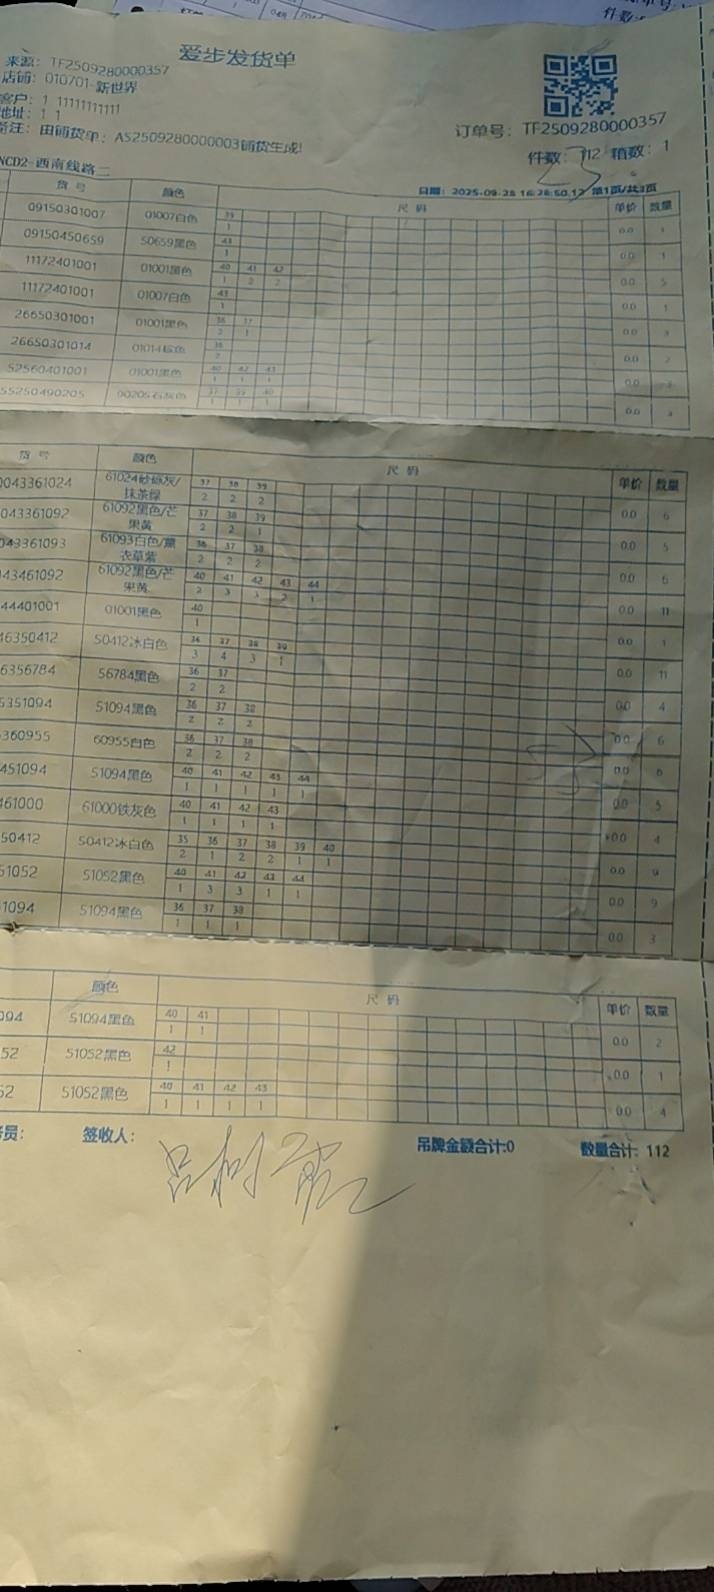 爱步发货单
来源: TF2509280000357
店铺: 010701-新世界
客户: 1 11111111111
地址: 1 1
备注: 由铺货单: AS2509280000003铺货生成!
订单号: TF2509280000357
件数: 112 箱数: 1
NCD2-西南线路二
日期: 2025-09-28 16:28:50.17 第1页/共3页
货 号 颜色 尺 码 单价 数量
09150301007 01007白色 39 0.0 1
1
09150450659 50659黑色 43 0.0 1
1
11172401001 01001黑色 40 41 42 0.0 5
1 2 2
11172401001 01007白色 43 0.0 1
1
26650301001 01001黑色 36 37 0.0 3
2 1
26650301014 01014棕色 38 0.0 2
2
52560401001 01001黑色 40 42 43 0.0 3
1 1 1
55250490205 90205石灰色 37 39 40 0.0 3
1 1 1
货 号 颜色 尺 码 单价 数量
0043361024 61024砂砾灰/抹茶绿 37 38 39 0.0 6
2 2 2
043361092 61092黑色/芒果黄 37 38 39 0.0 5
2 2 1
043361093 61093白色/薰衣草紫 36 37 38 0.0 6
2 2 2
43461092 61092黑色/芒果黄 40 41 42 43 44 0.0 11
2 3 3 2 1
44401001 01001黑色 40 0.0 1
1
46350412 50412冰白色 36 37 38 39 0.0 11
3 4 3 1
6356784 56784黑色 36 37 0.0 4
2 2
5351094 51094黑色 36 37 38 0.0 6
2 2 2
360955 60955白色 36 37 38 0.0 6
2 2 2
451094 51094黑色 40 41 42 43 44 0.0 5
1 1 1 1 1
461000 61000铁灰色 40 41 42 43 0.0 4
1 1 1 1
50412 50412冰白色 35 36 37 38 39 40 0.0 9
2 1 2 2 1 1
51052 51052黑色 40 41 42 43 44 0.0 9
1 3 3 1 1
1094 51094黑色 36 37 38 0.0 3
1 1 1
颜色 尺 码 单价 数量
094 51094黑色 40 41 0.0 2
1 1
52 51052黑色 42 0.0 1
1
52 51052黑色 40 41 42 43 0.0 4
1 1 1 1
员: 签收人: 吊牌金额合计:0 数量合计: 112